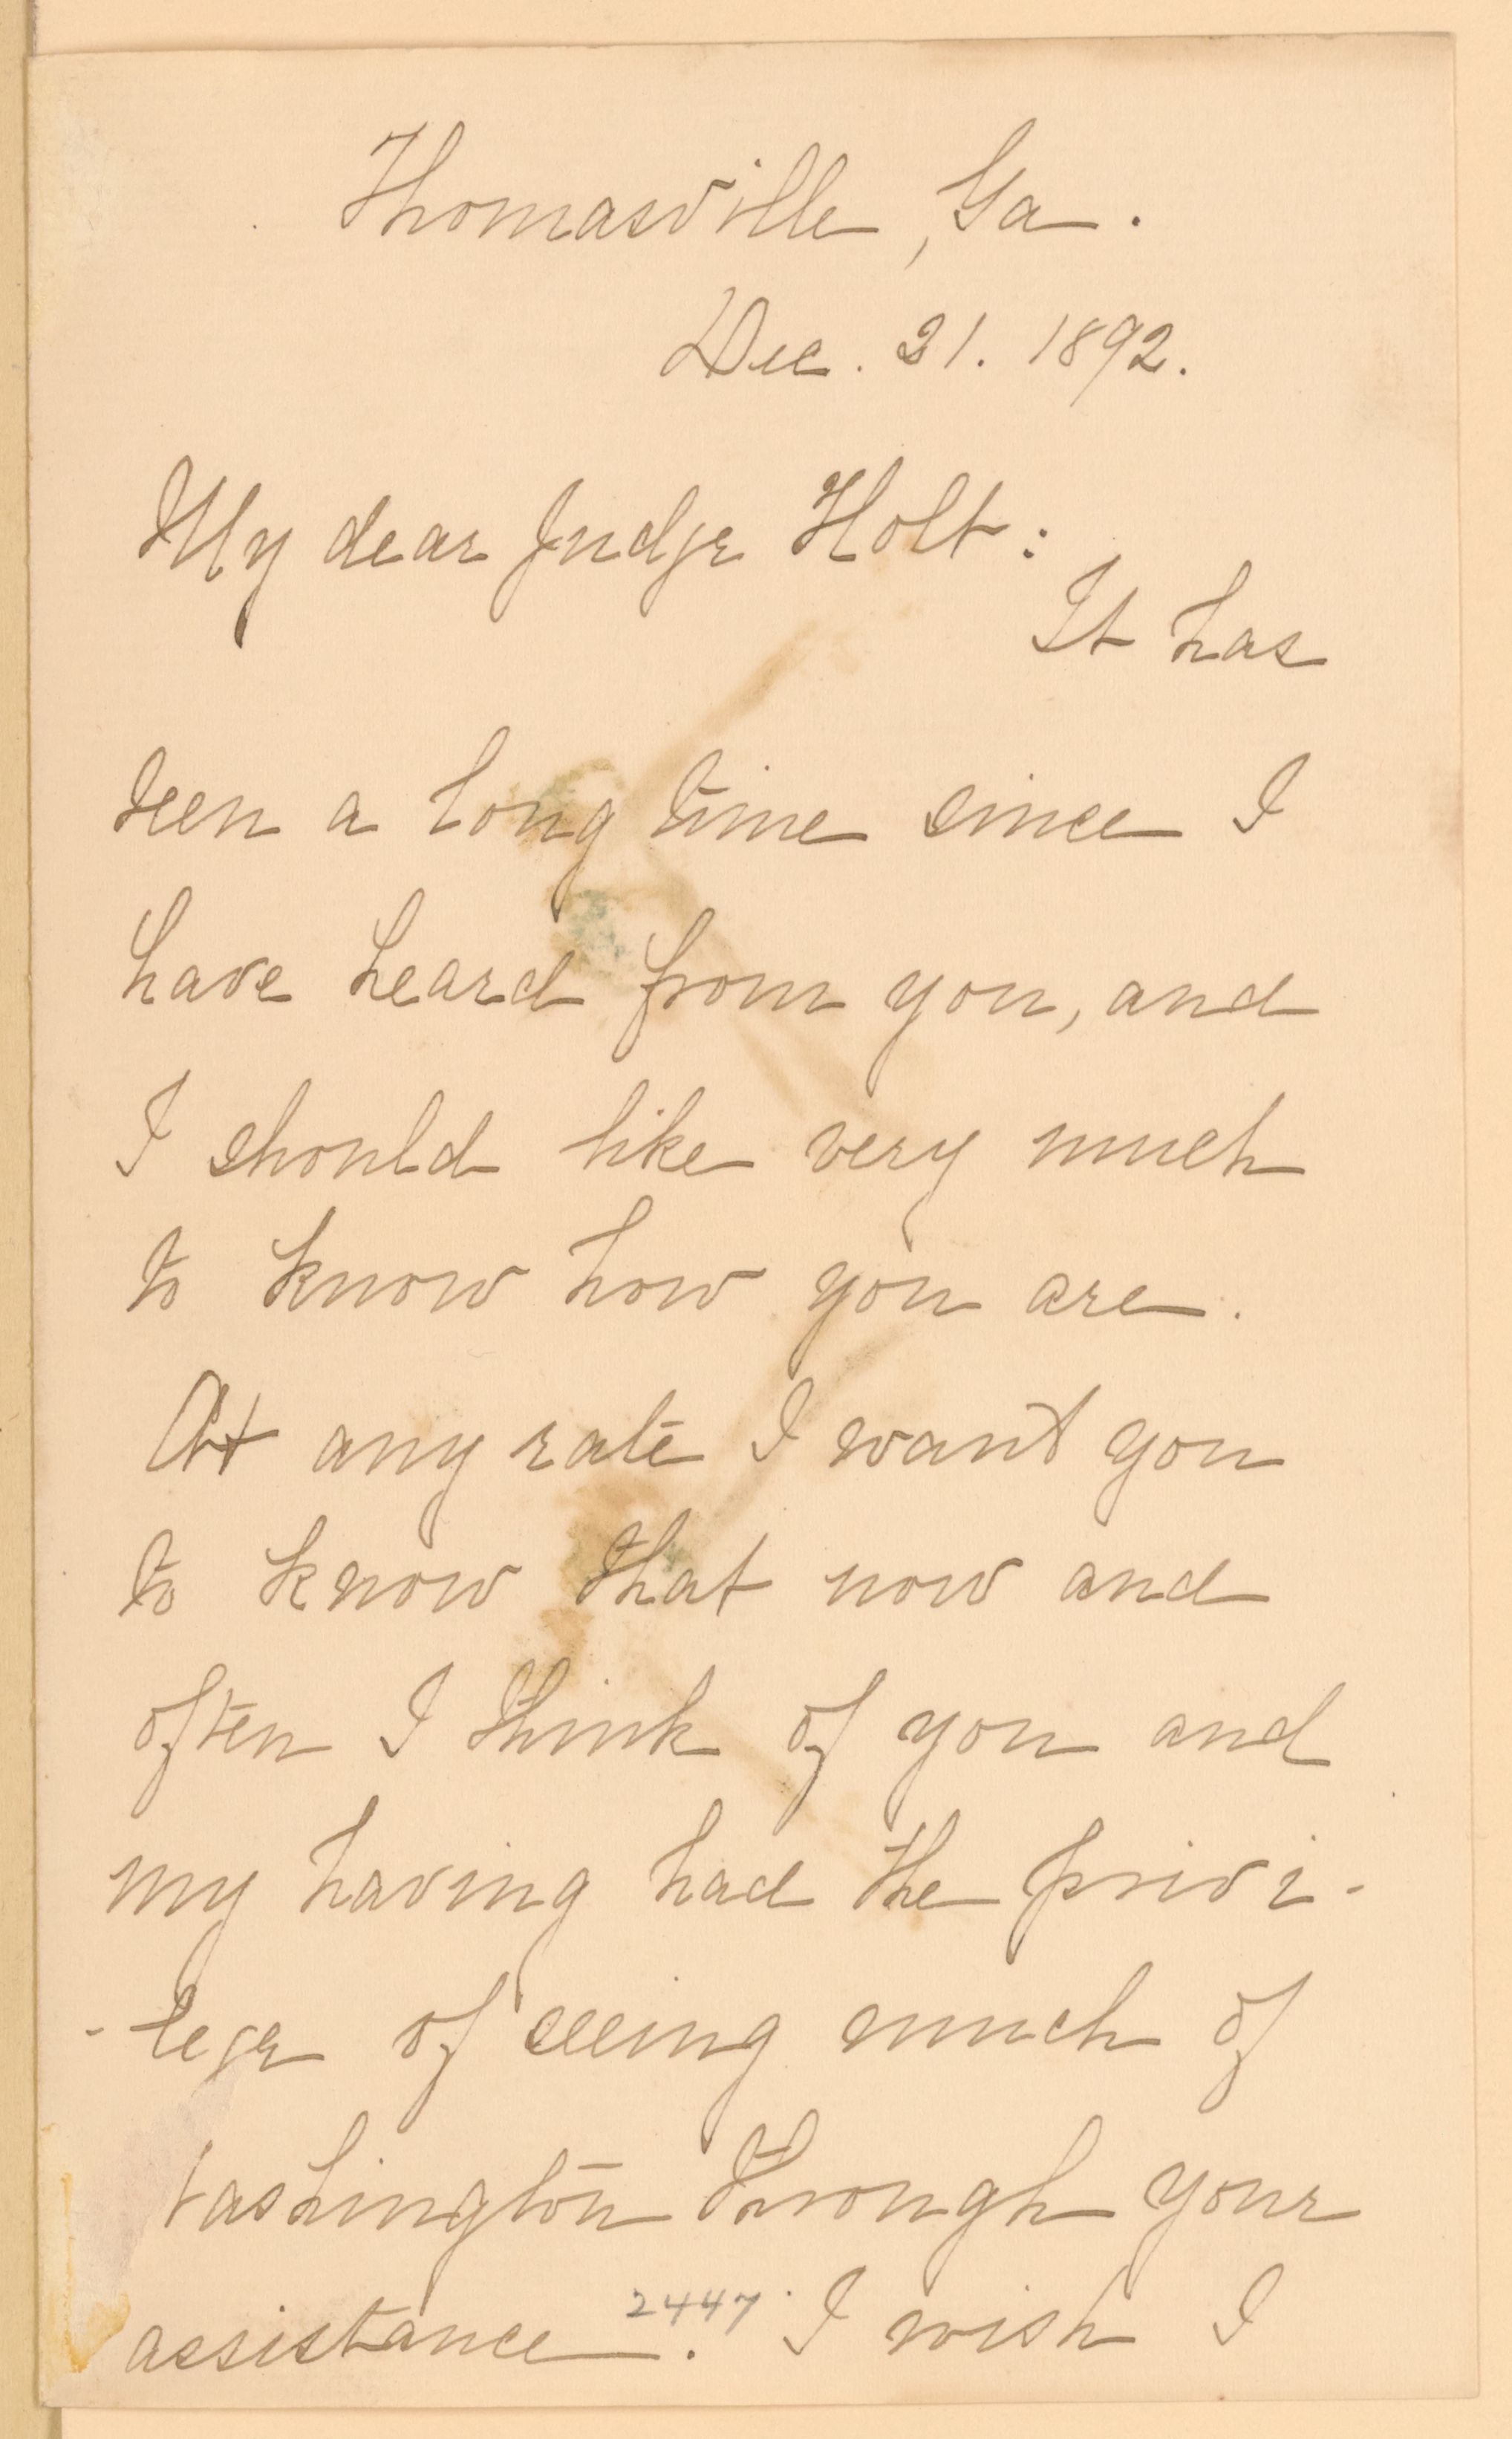 Thomasville, Ga.
Dec. 21. 1892.
My dear Judge Holt:
It has
been a long time since I
have heard from you, and
I should like very much
to know how you are.
At any rate I want you
to know that now and
often I think of you and
my having had the privi-
-lege of seeing much of
Washington through your
assistance. I wish I
2447